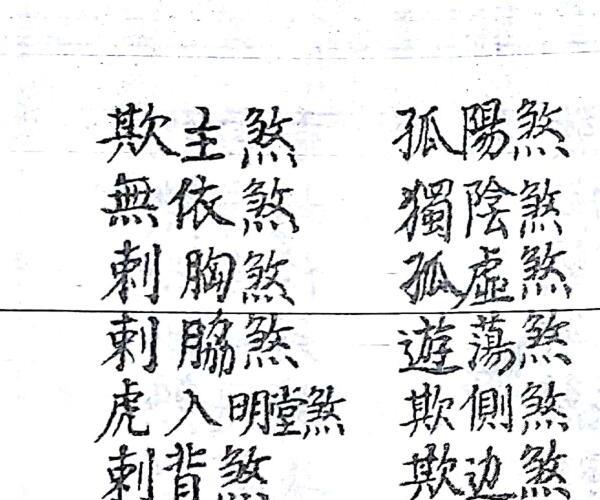 欺主煞 孤陽煞
無依煞 獨陰煞
刺胸煞 孤虛煞
刺脇煞 遊蕩煞
虎入明堂煞 欺側煞
刺背煞 欺边煞